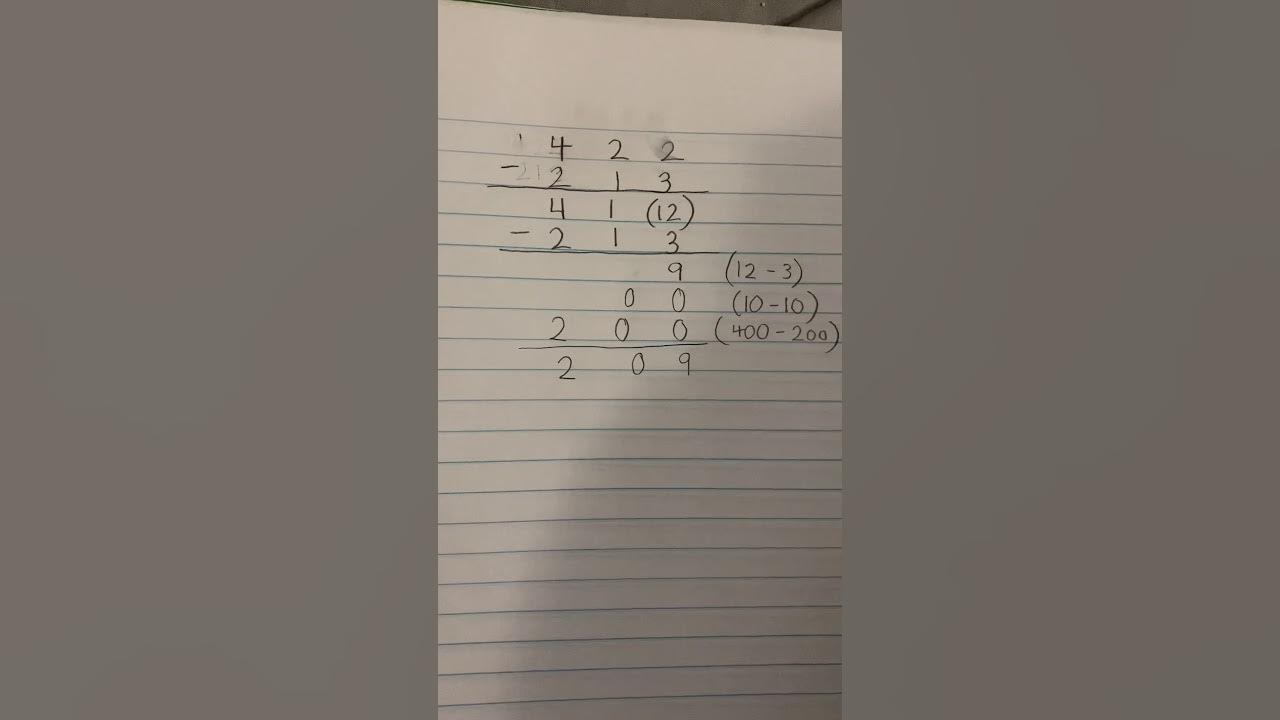 4 2 2
- 2 1 3
4 1 (12)
- 2 1 3
9 (12 - 3)
0 0 (10 - 10)
2 0 0 (400 - 200)
2 0 9